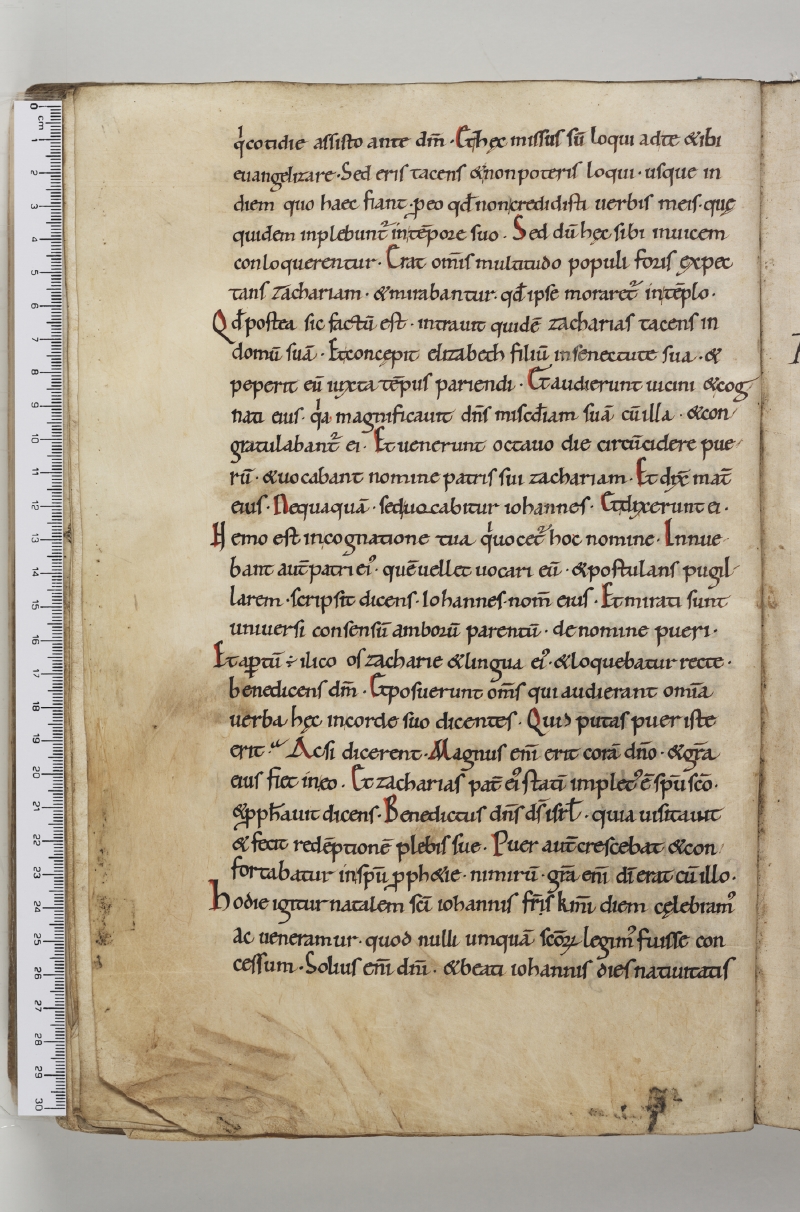 qͥ cotidie assisto ante dm̄ · Et hęc missus sū loqui ad te & ibi
euangelizare · Sed eris tacens & non poteris loqui · usque in
diem quo haec fiant · ꝓ eo qđ non credidisti uerbis meis · quę
quidem inplebunt᷑ in tēpore suo · Sed dū hęc sibi inuicem
conloquerentur · Erat om̄is multitudo populi foris expec
tans zachariam · & mirabantur · qđ ipse moraret᷑ in tēplo ·
Qđ postea sic factū est · intrauit quidē zacharias tacens in
domū suā · Et concepit elizabeth filiū in senectute sua · &
peperit eū iuxta tēpus pariendi · Et audierunt uicini & cog
nati eius · qͥa magnificauit dn̄s miscđiam suā cū illa · & con
gratulabant᷑ ei · Et uenerunt octauo die circūcidere pue
rū · & uocabant nomine patris sui zachariam · Et dix̄ mat̄
eius · Nequaquā · sed uocabitur iohannes · Et dixerunt ei ·
Nemo est in cognatione tua qͥ uocet᷑ hoc nomine · Innue
bant aut̄ patri eiꝰ · quē uellet uocari eū · & postulans pugil
larem · scripsit dicens · Iohannes · nom̄ eius · Et mirati sunt
uniuersi consensū amborū parentū · de nomine pueri ·
Et aꝑtū ÷ ilico os zacharie & lingua eiꝰ · & loquebatur recte ·
benedicens dm̄ · Et posuerunt om̄s qui audierant om̄ia
uerba hęc in corde suo dicentes · Quid putas puer iste
erit · Ac si dicerent · Magnus em̄ erit corā dn̄o · & gr̄a
eius fiet in eo · Et zacharias pat̄ eiꝰ statī impletꝰ ē sp̄u sc̄o ·
& ꝓph̄auit dicens · Benedictus dn̄s ds̄ isrł · quia uisitauit
& fecit redēptionē plebis sue · Puer aut̄ crescebat & con
fortabatur in sp̄u ꝓph&ie · nimirū · gr̄a em̄ dī erat cū illo ·
Hodie igitur natalem sc̄i iohannis fr̄is km̄i diem celębramꝰ
ac ueneramur · quod nulli umquā sc̄oꝝ legimꝰ fuisse con
cessum · Solius em̄ dn̄i · & beati iohannis dies natiuitatis